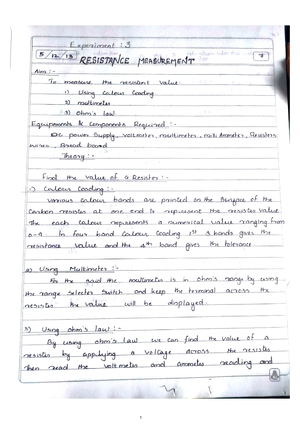 Experiment : 3
5/12/13 RESISTANCE MEASUREMENT 7
Aim :-
To measure the resistant value.
1) Using Colour Coading
2) multimeter
3) ohm's law
Equipments & Components Required :-
DC power Supply, Voltmeter, multimeter, milli Ammeter, Resistors
wires, Bread board.
Theory :-
Find the value of a Resister :-
1) Colour Coading :-
various Colour bands are printed on the surface of the
Carbon resistor at one end to represent the resistor value
The each Colour represents a numerical value ranging from
0-9. In four band Colour Coading 1st 3 bands gives the
resistance value and the 4th band gives the tolerance.
2) Using Multimeter :-
For the multimeter is in ohm's range by using
the range selector switch and keep the terminal across the
resistor the value will be displayed.
3) Using ohm's law :-
By using ohm's law we can find the value of a
resistor by applying a voltage across the resistor
then read the voltmeter and ammeter reading and